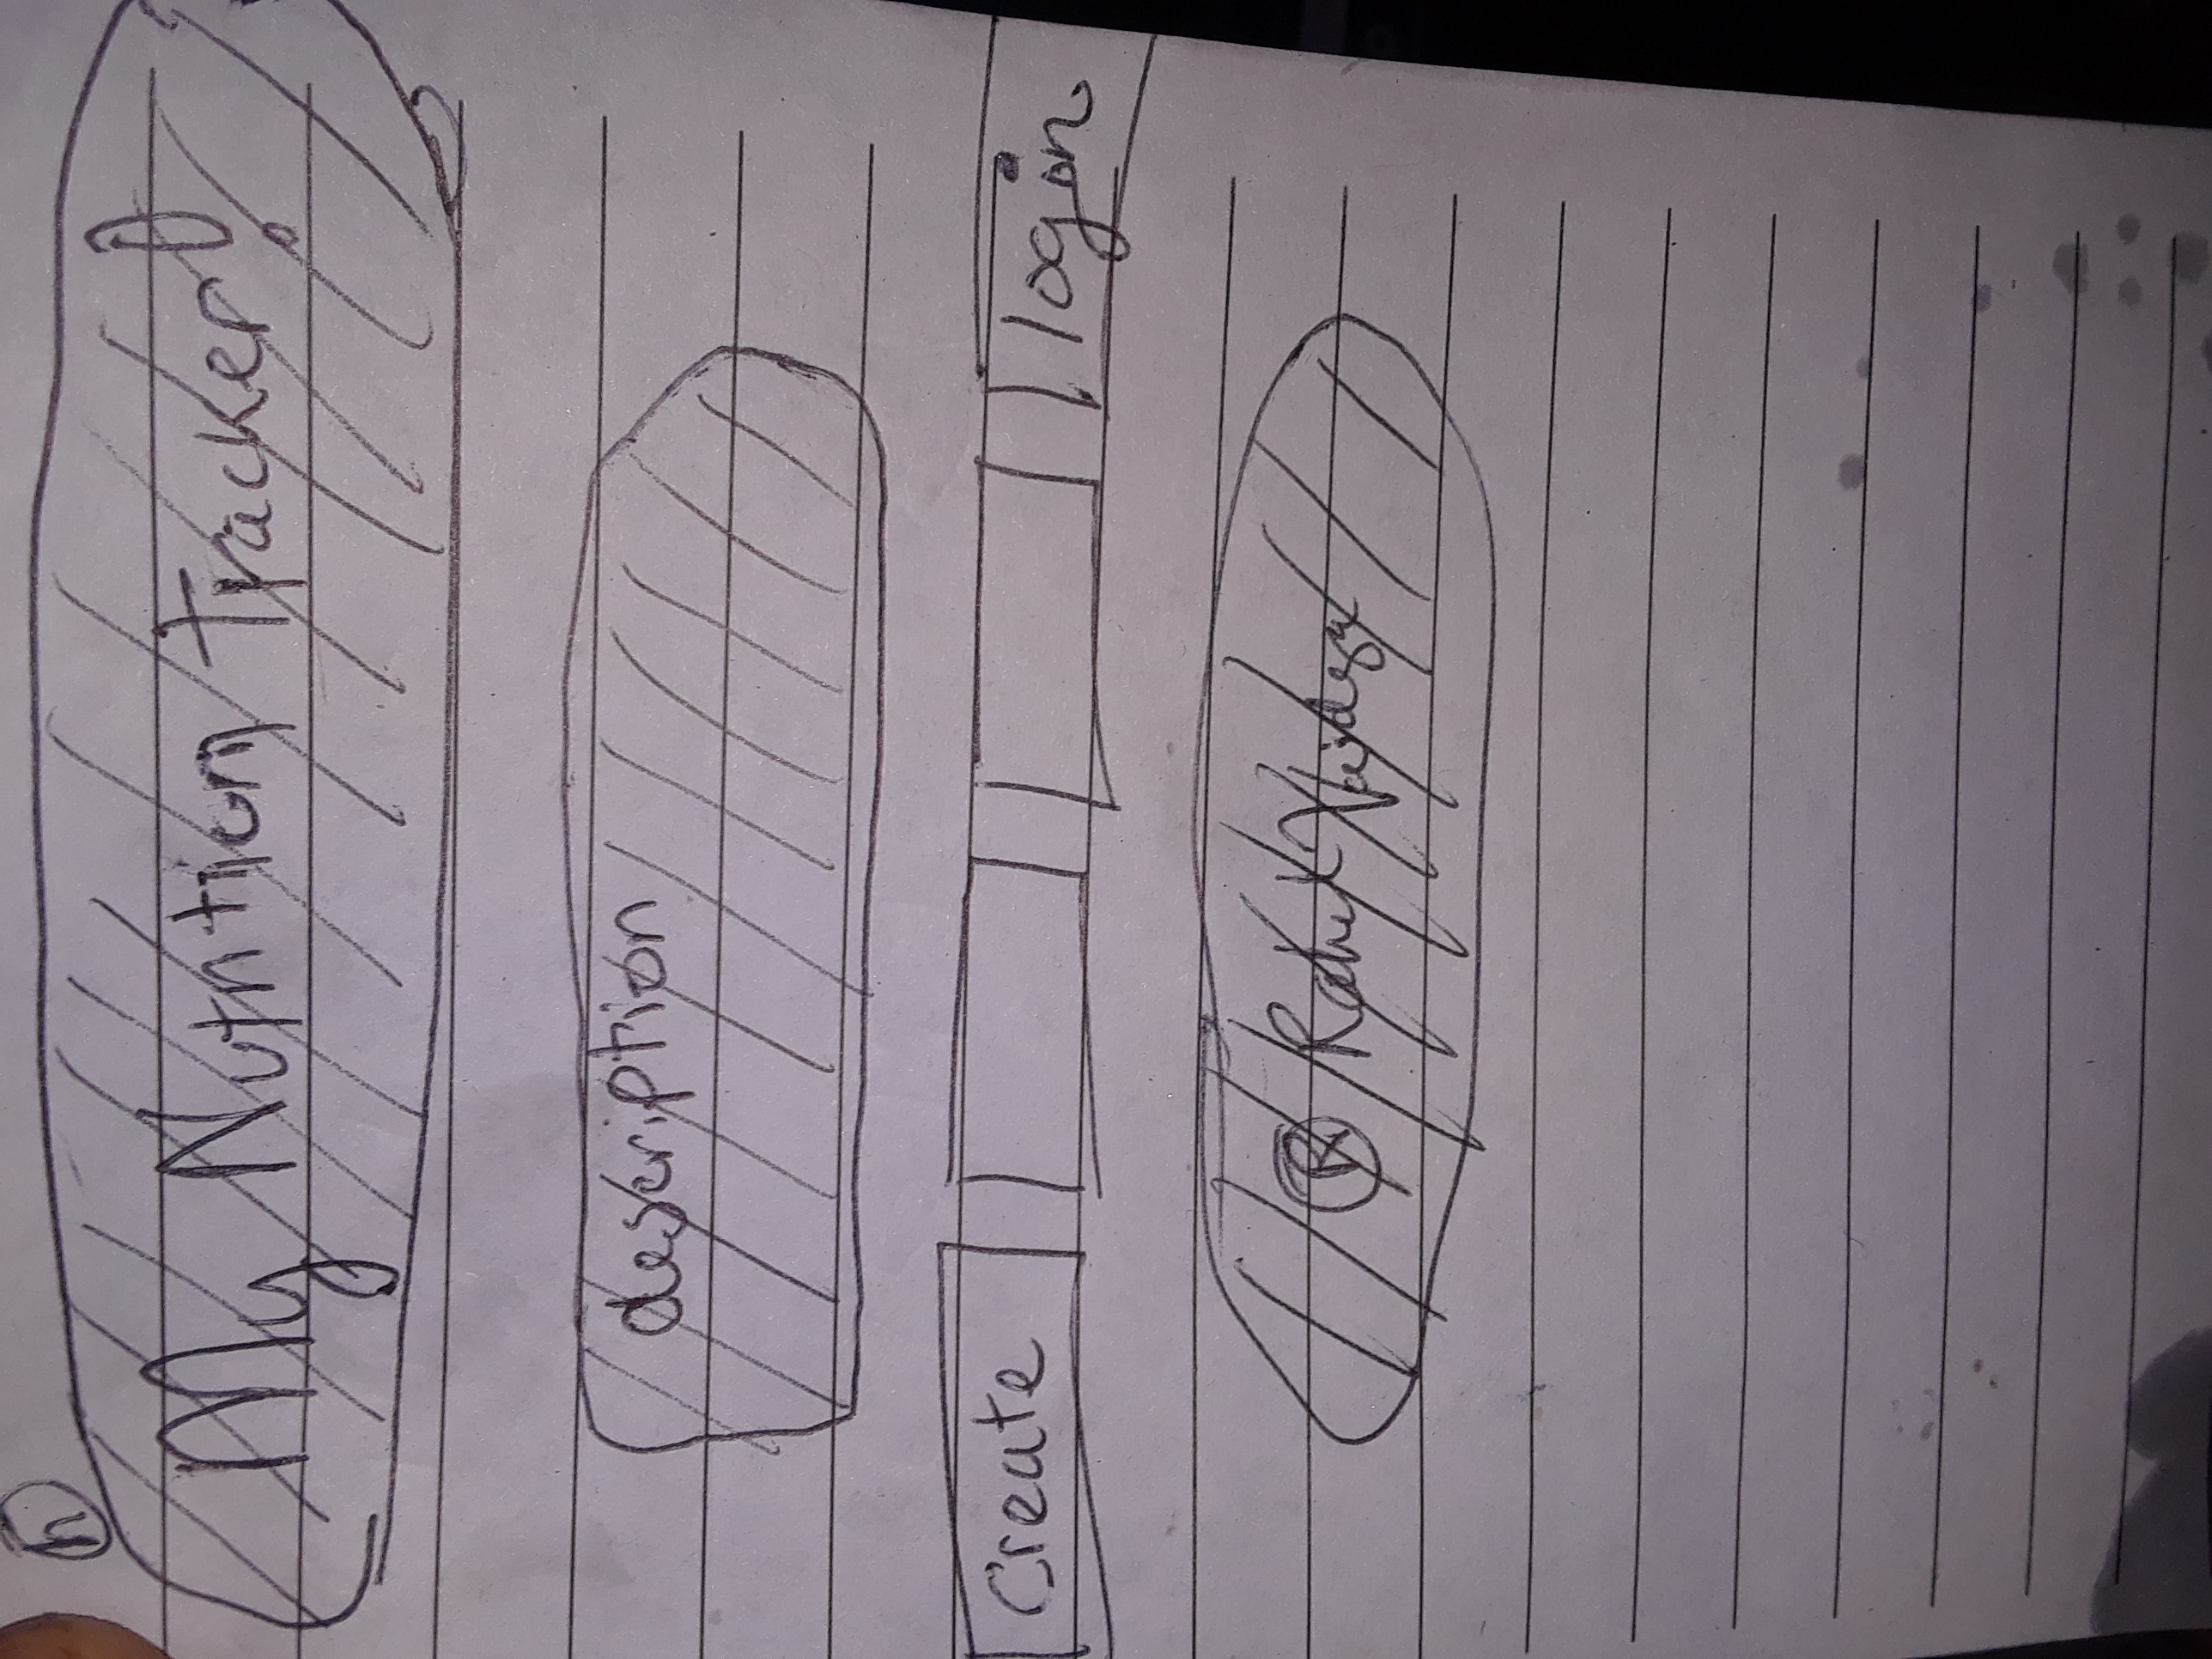 h
My Nutrition Tracker!
description
Create
login
®